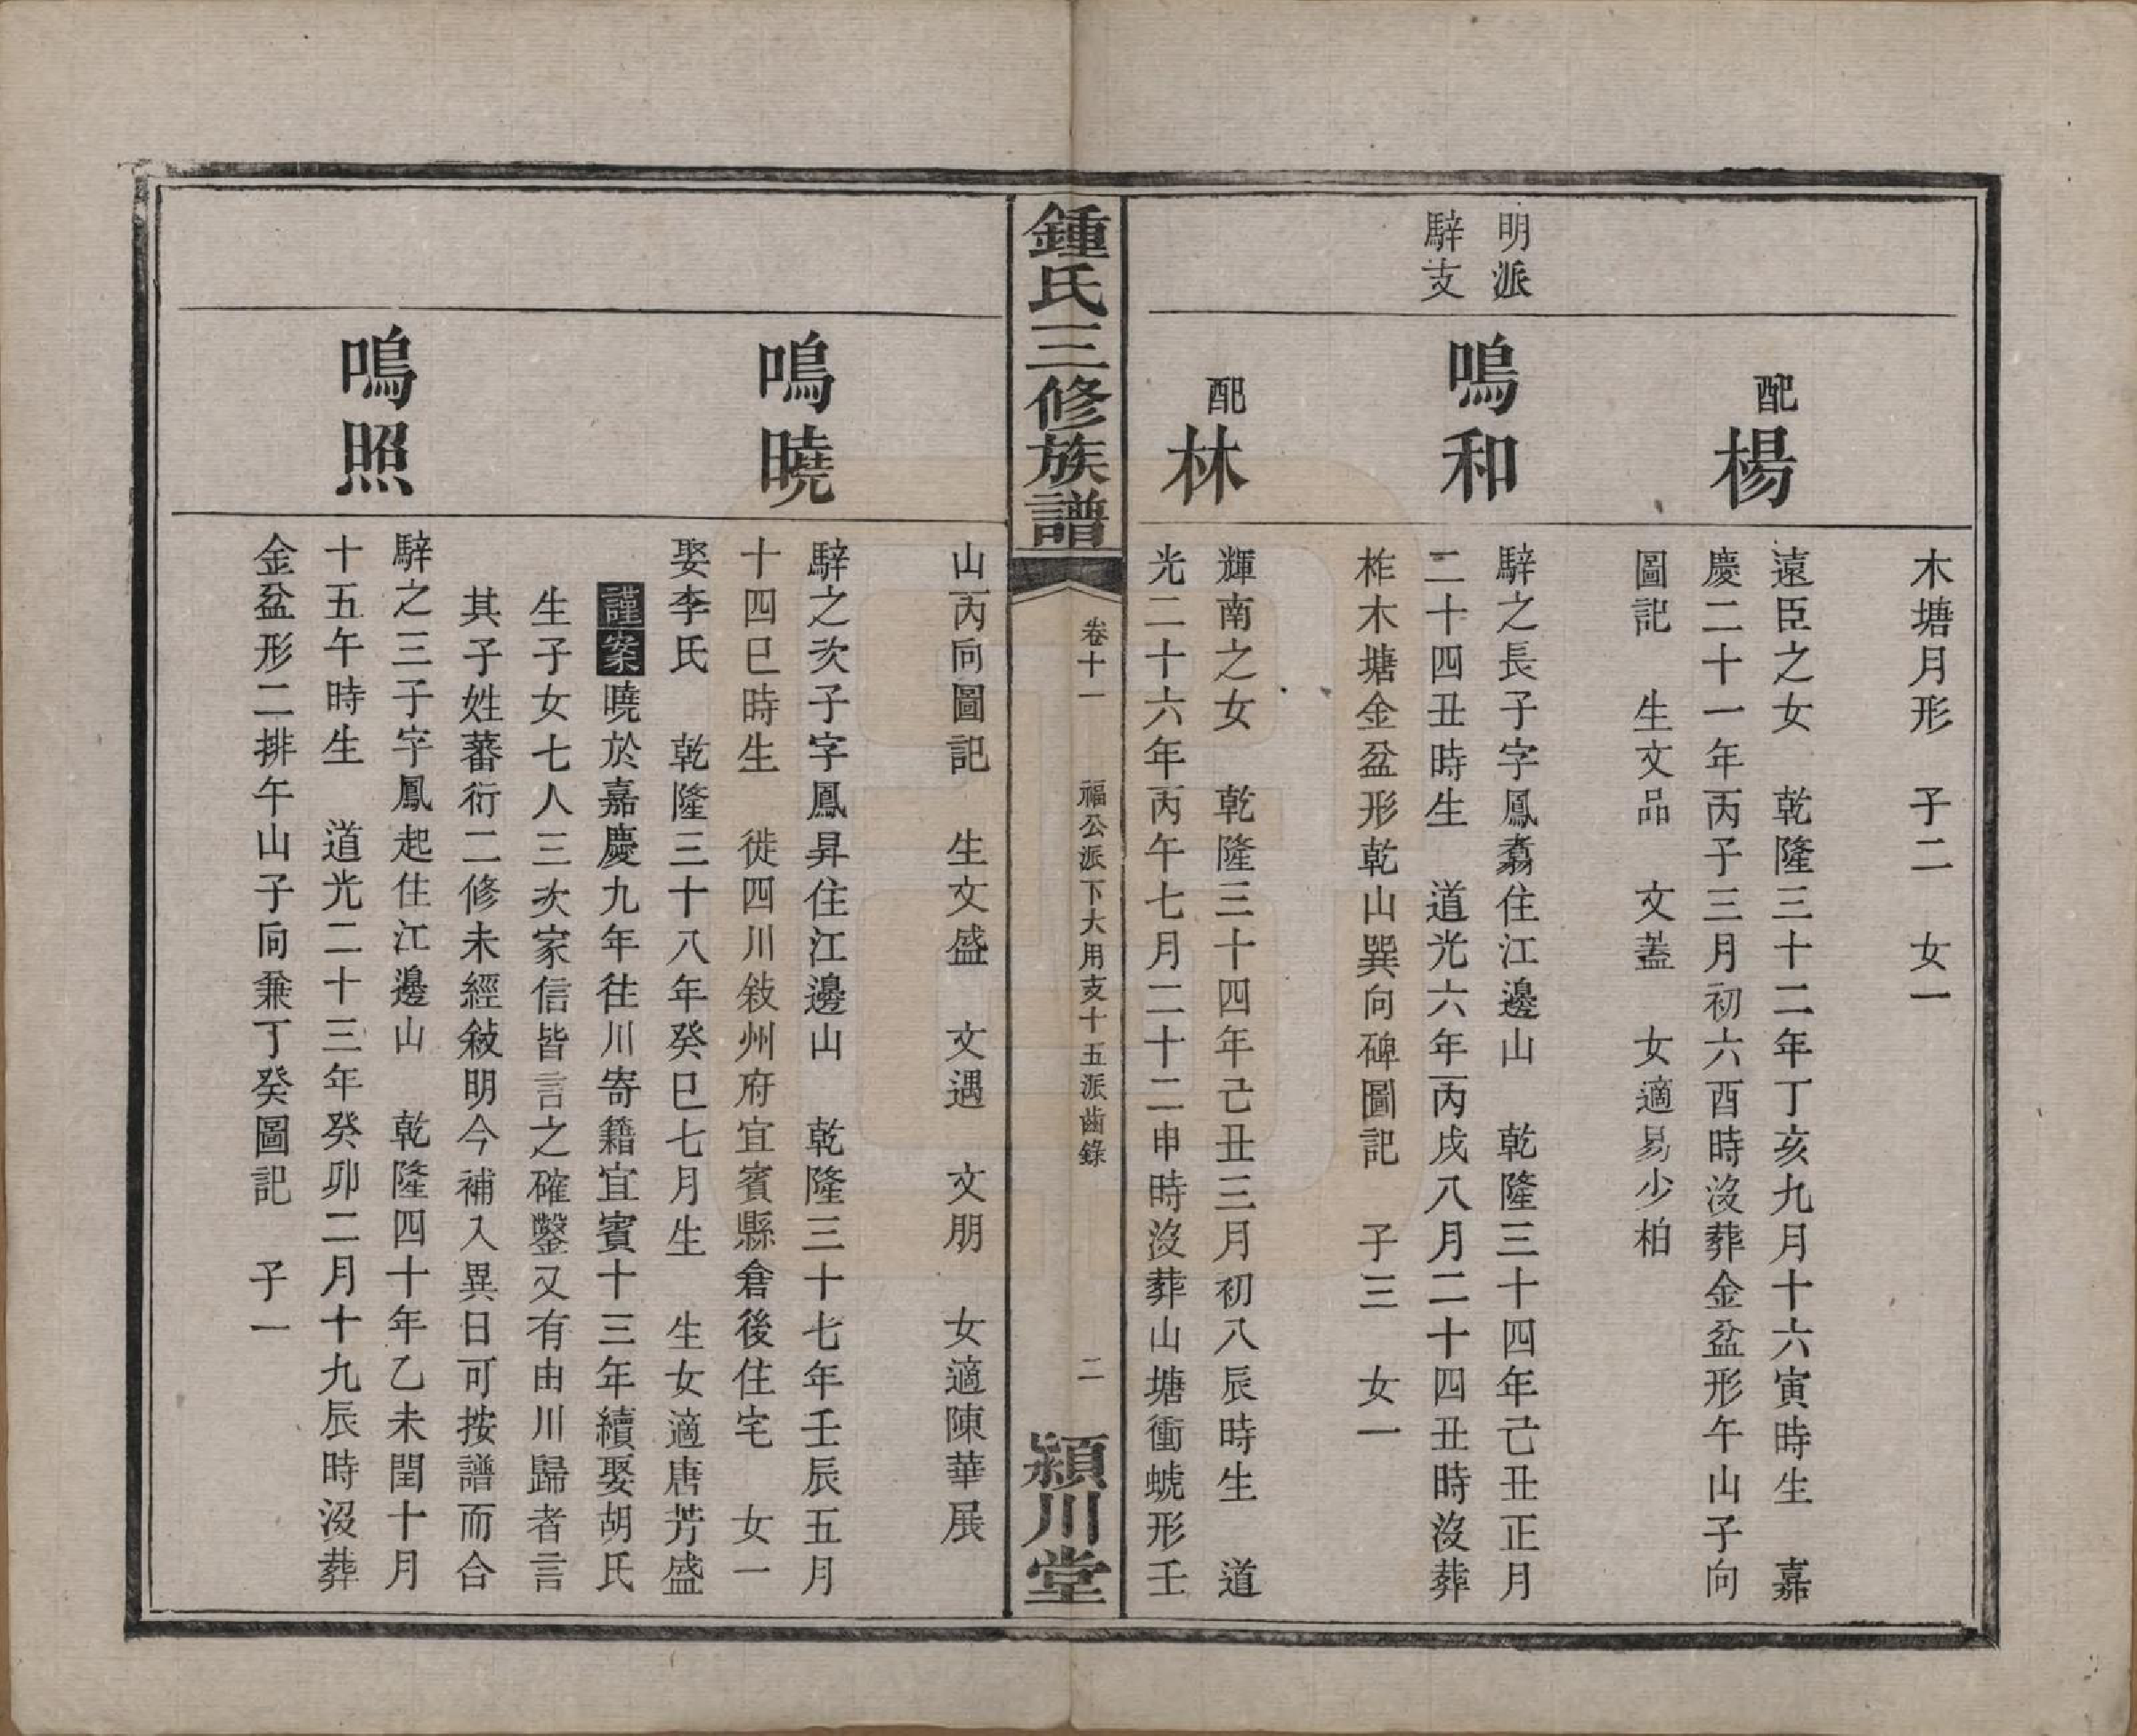 木塘月形　子二　女一
配楊
遠臣之女　乾隆三十二年丁亥九月十六寅時生　嘉
慶二十一年丙子三月初六酉時沒葬金盆形午山子向
圖記　生文品　文蓋　女適易少柏
明派
騂支
鳴和
騂之長子字鳳翥住江邊山　乾隆三十四年己丑正月
二十四丑時生　道光六年丙戌八月二十四丑時沒葬
柞木塘金盆形乾山巽向碑圖記　子三　女一
配林
輝南之女　乾隆三十四年己丑三月初八辰時生　道
光二十六年丙午七月二十二申時沒葬山塘衝蜣形壬
鍾氏三修族譜
卷十一　福公派下大用支十五派齒錄　二
潁川堂
山丙向圖記　生文盛　文遇　文朋　女適陳華展
鳴曉
騂之次子字鳳昇住江邊山　乾隆三十七年壬辰五月
十四巳時生　徙四川敍州府宜賓縣倉後住宅　女一
娶李氏　乾隆三十八年癸巳七月生　生女適唐芳盛
謹案曉於嘉慶九年徃川寄籍宜賓十三年續娶胡氏
生子女七人三次家信皆言之確鑿又有由川歸者言
其子姓蕃衍二修未經敍明今補入異日可按譜而合
鳴照
騂之三子字鳳起住江邊山　乾隆四十年乙未閏十月
十五午時生　道光二十三年癸卯二月十九辰時沒葬
金盆形二排午山子向兼丁癸圖記　子一